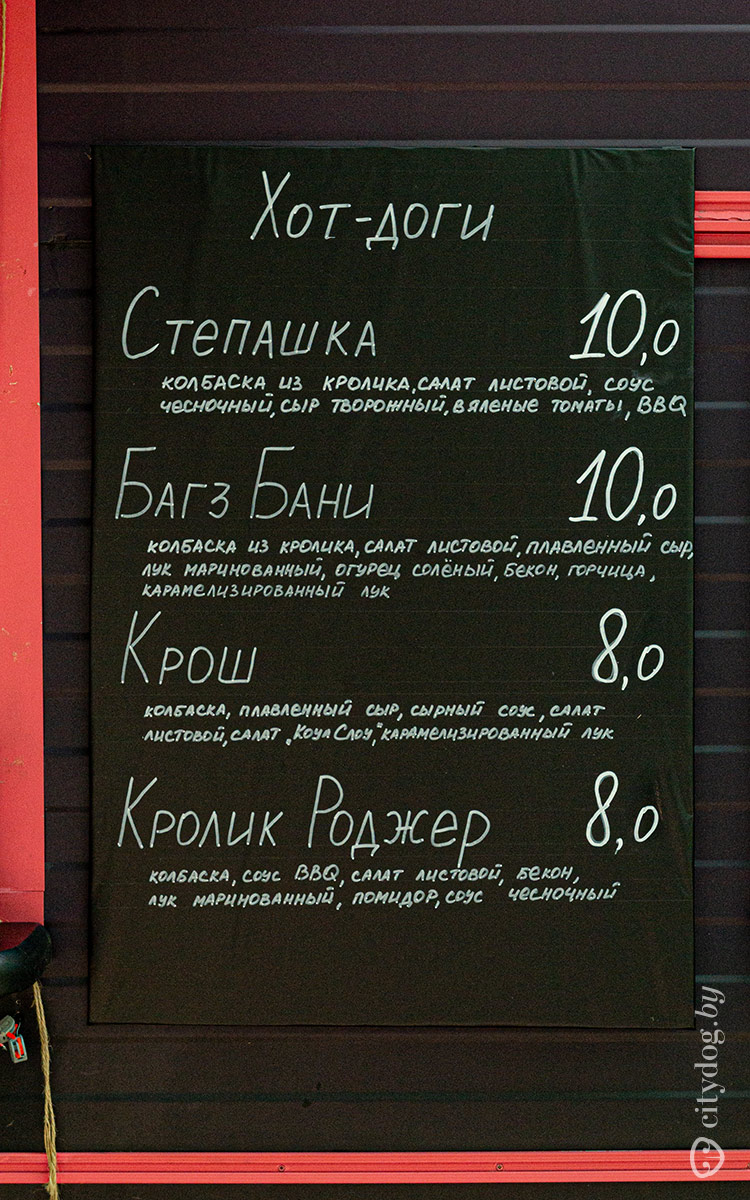 Хот-доги
Степашка 10,0
колбаска из кролика, салат листовой, соус
чесночный, сыр творожный, вяленые томаты, BBQ
Багз Бани 10,0
колбаска из кролика, салат листовой, плавленный сыр,
лук маринованный, огурец солёный, бекон, горчица,
карамелизированный лук
Крош 8,0
колбаска, плавленный сыр, сырный соус, салат
листовой, салат „Коул Слоу", карамелизированный лук
Кролик Роджер 8,0
колбаска, соус BBQ, салат листовой, бекон,
лук маринованный, помидор, соус чесночный
citydog.by